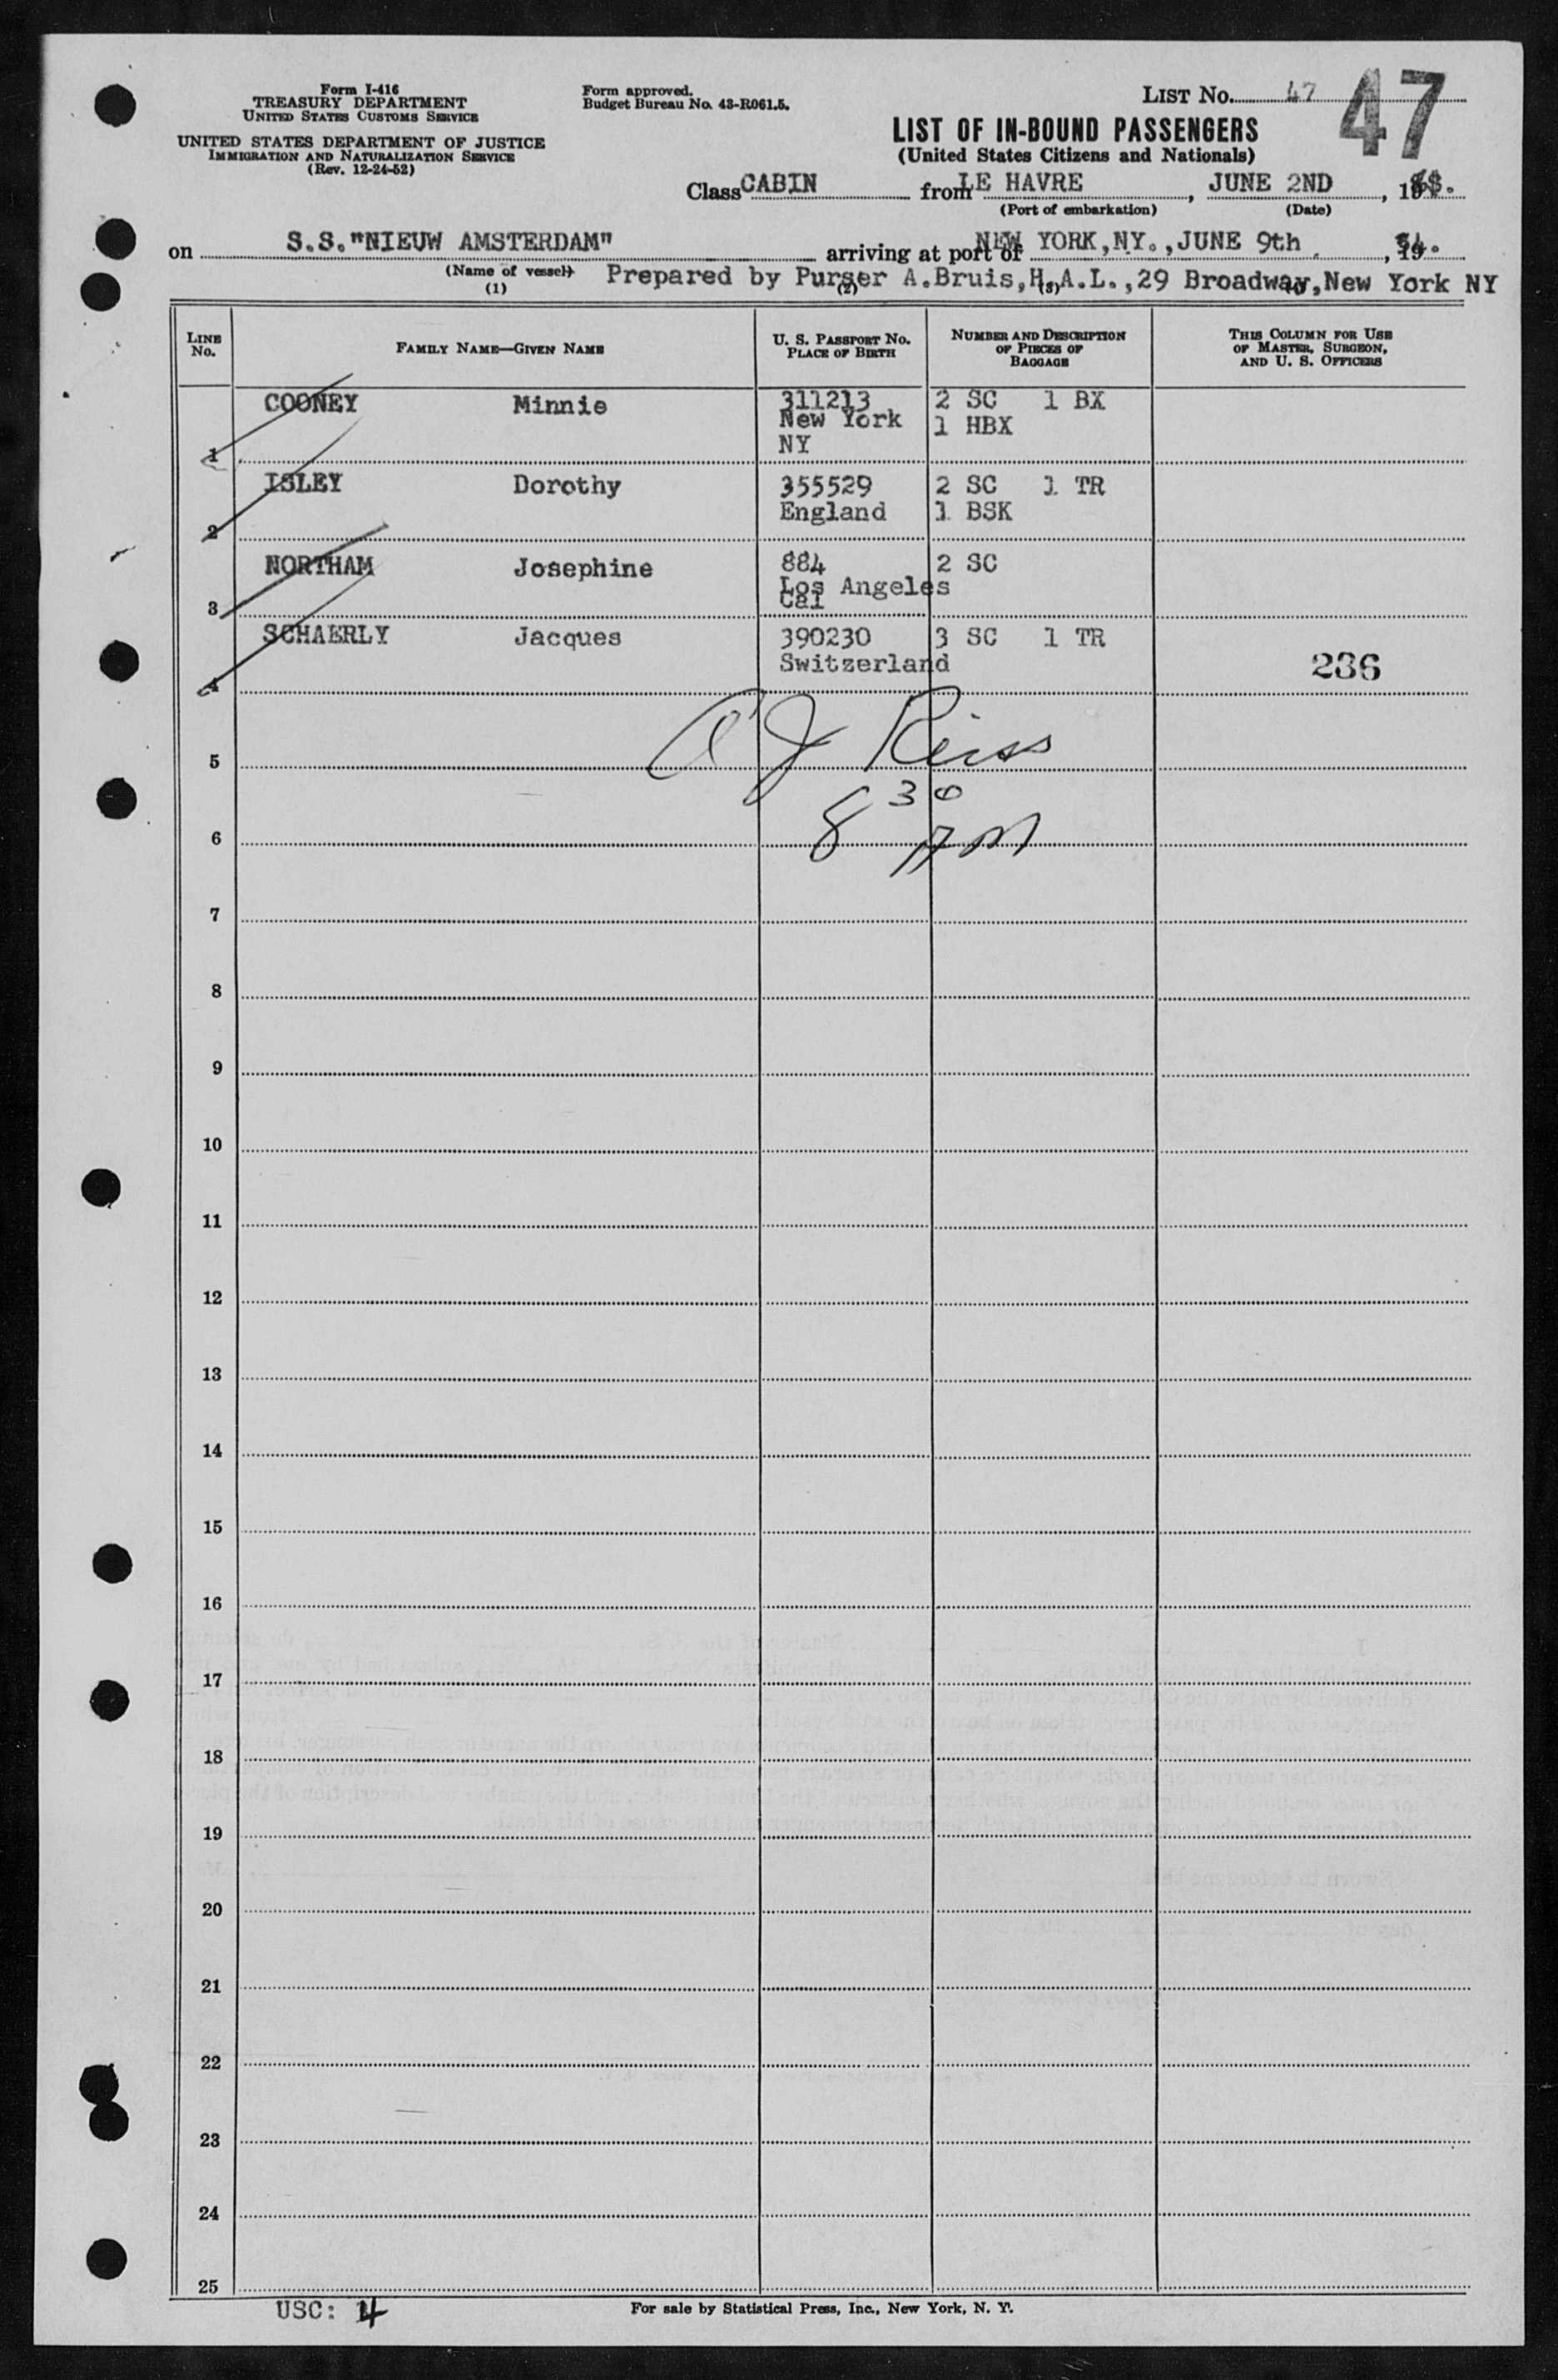 Form I-416
TREASURY DEPARTMENT
UNITED STATES CUSTOMS SERVICE
UNITED STATES DEPARTMENT OF JUSTICE
IMMIGRATION AND NATURALIZATION SERVICE
(Rev. 12-24-52)
Form approved.
Budget Bureau No. 43-R061.5.
LIST No. 47 47
LIST OF IN-BOUND PASSENGERS
(United States Citizens and Nationals)
Class CABIN from LE HAVRE, JUNE 2ND, 19
(Port of embarkation) (Date)
on S.S."NIEUW AMSTERDAM" arriving at port of NEW YORK,NY.,JUNE 9th, 1954.
(Name of vessel) Prepared by Purser A.Bruis,H.A.L.,29 Broadway,New York NY
(1) (2) (3)
LINE No. FAMILY NAME—GIVEN NAME U. S. PASSPORT No. PLACE OF BIRTH NUMBER AND DESCRIPTION OF PIECES OF BAGGAGE THIS COLUMN FOR USE OF MASTER, SURGEON, AND U. S. OFFICERS
COONEY Minnie 311213 2 SC 1 BX
New York 1 HBX
1 NY
ISLEY Dorothy 355529 2 SC 1 TR
2 England 1 BSK
NORTHAM Josephine 884 2 SC
Los Angeles
3 Cal
SCHAERLY Jacques 390230 3 SC 1 TR
4 Switzerland 236
A J Reiss
5
8 30 AM
6
7
8
9
10
11
12
13
14
15
16
17
18
19
20
21
22
23
24
25
USC: 4
For sale by Statistical Press, Inc., New York, N. Y.